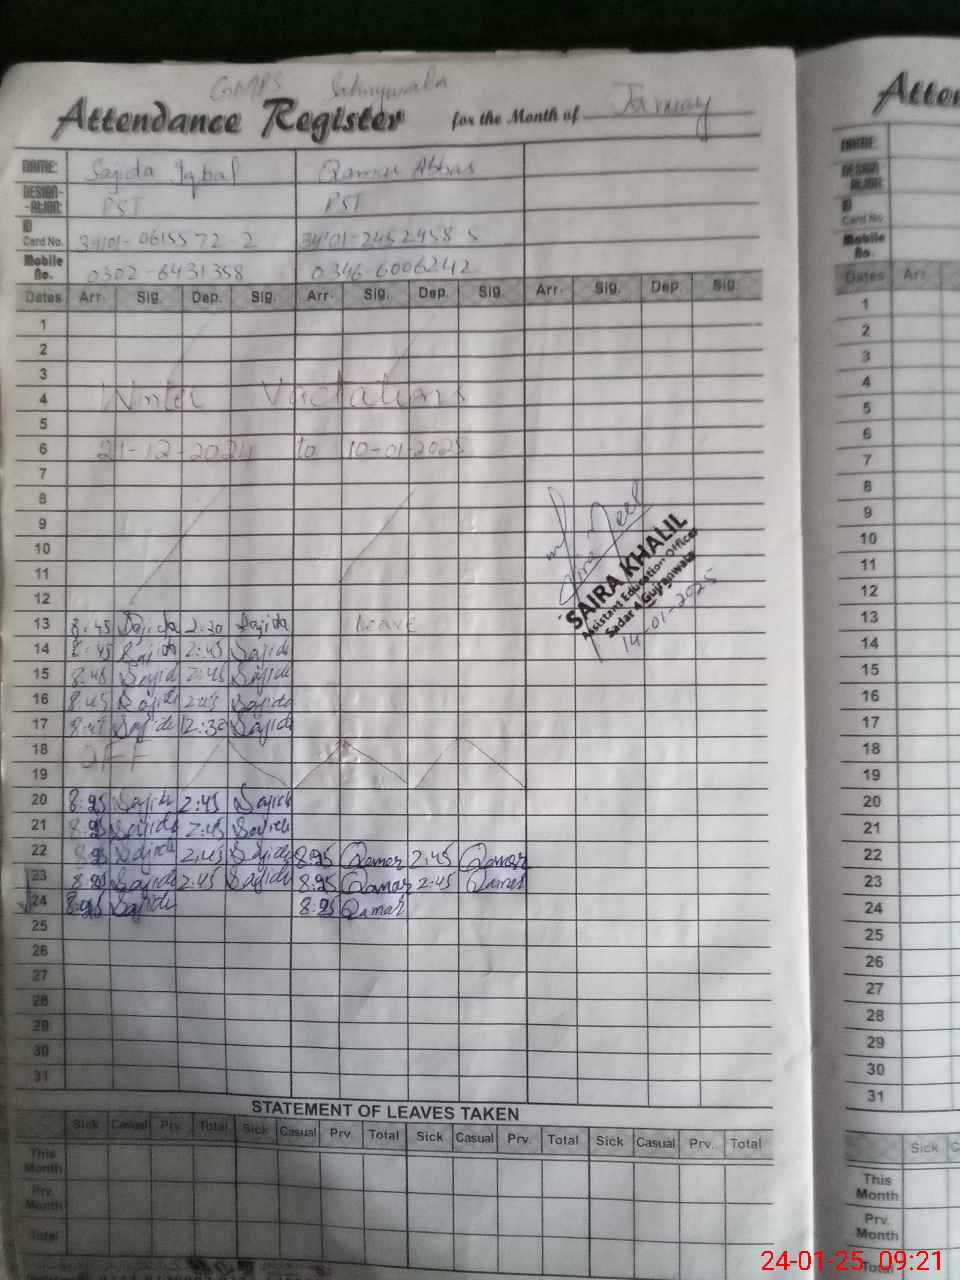 GMPS Sahnywala
Attendance Register for the Month of January
NAME: Sajida Iqbal Qamar Abbas
DESIGN-ATION: PST PST
ID Card No. 34101-0615572-2 34101-2452458-5
Mobile No. 0302-6431358 0346-6006242
Dates Arr. Sig. Dep. Sig. Arr. Sig. Dep. Sig. Arr. Sig. Dep. Sig.
1
2
3
4 Winter Vactations
5
6 21-12-2024 to 10-01-2025
7
8
9
10
11
12
13 8:45 Sajida 2:30 Sajida Leave
14 8:45 Sajida 2:45 Sajida
15 8:45 Sajida 2:45 Sajida
16 8:45 Sajida 2:45 Sajida
17 8:45 Sajida 12:30 Sajida
18 OFF
19
20 8:25 Sajida 2:45 Sajida
21 8:25 Sajida 2:45 Sajida
22 8:25 Sajida 2:45 Sajida 8:25 Qamar 2:45 Qamar
23 8:25 Sajida 2:45 Sajida 8:25 Qamar 2:45 Qamar
24 8:25 Sajida 8:25 Qamar
25
26
27
28
29
30
31
SAIRA KHALIL
Assistant Education Officer
Sadar 4 Gujranwala
14-01-2025
STATEMENT OF LEAVES TAKEN
Sick Casual Prv. Total Sick Casual Prv. Total Sick Casual Prv. Total Sick Casual Prv. Total
This Month
Prv. Month
Total
Atten
NAME:
DESIGN-ATION:
ID Card No
Mobile No.
Dates Arr.
1
2
3
4
5
6
7
8
9
10
11
12
13
14
15
16
17
18
19
20
21
22
23
24
25
26
27
28
29
30
31
Sick C
This Month
Prv. Month
Total
24-01-25 09:21